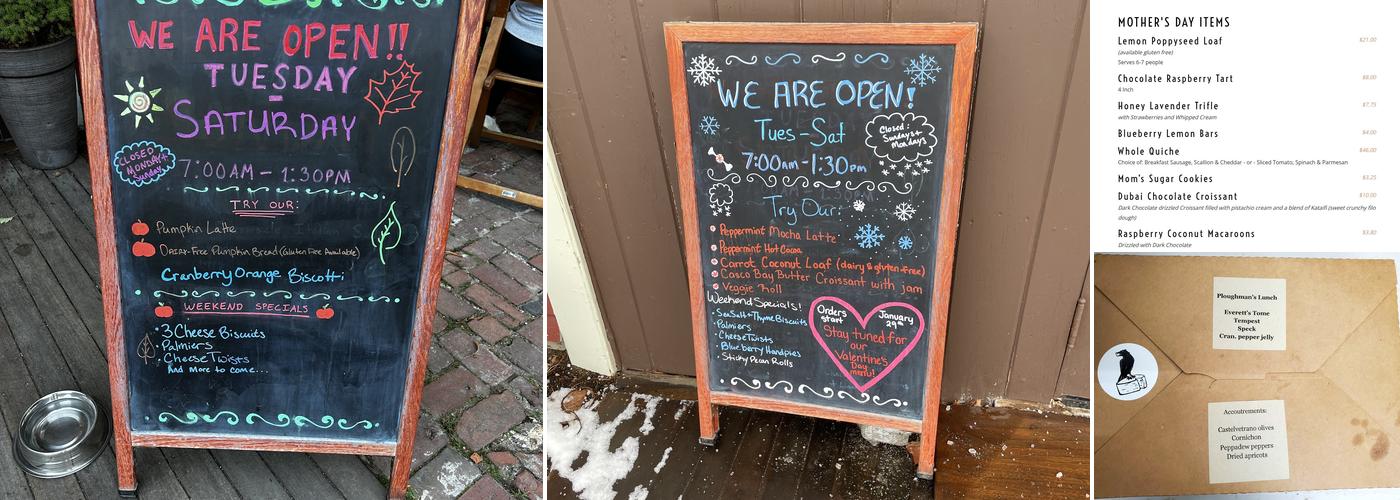 WE ARE OPEN!!
TUESDAY
-
SATURDAY
CLOSED
MONDAY +
Sunday
7:00AM - 1:30PM
TRY OUR:
Pumpkin Latte
DAIRY-Free Pumpkin Bread (Gluten Free Available)
Cranberry Orange Biscotti
WEEKEND SPECIALS
• 3 Cheese Biscuits
• Palmiers
• Cheese Twists
And more to come...
WE ARE OPEN!
Tues - Sat
Closed:
Sundays +
Mondays
7:00AM - 1:30pm
Try Our:
Peppermint Mocha Latte
Peppermint Hot Cocoa
Carrot Coconut Loaf (dairy & gluten-free)
Casco Bay Butter Croissant with jam
Veggie Roll
Weekend Specials!
• Sea Salt + Thyme Biscuits
• Palmiers
• Cheese Twists
• Blueberry Handpies
• Sticky Pecan Rolls
Orders start January 29th
Stay tuned for
our
Valentine's
Day
menu!
MOTHER'S DAY ITEMS
Lemon Poppyseed Loaf $21.00
(available gluten free)
Serves 6-7 people
Chocolate Raspberry Tart $8.00
4 Inch
Honey Lavender Trifle $7.75
with Strawberries and Whipped Cream
Blueberry Lemon Bars $4.00
Whole Quiche $46.00
Choice of: Breakfast Sausage, Scallion & Cheddar - or - Sliced Tomato; Spinach & Parmesan
Mom's Sugar Cookies $3.25
Dubai Chocolate Croissant $10.00
Dark Chocolate drizzled Croissant filled with pistachio cream and a blend of Kataifi (sweet crunchy filo
dough)
Raspberry Coconut Macaroons $3.80
Drizzled with Dark Chocolate
Ploughman's Lunch
Everett's Tome
Tempest
Speck
Cran, pepper jelly
Accoutrements:
Castelvetrano olives
Cornichon
Peppadew peppers
Dried apricots